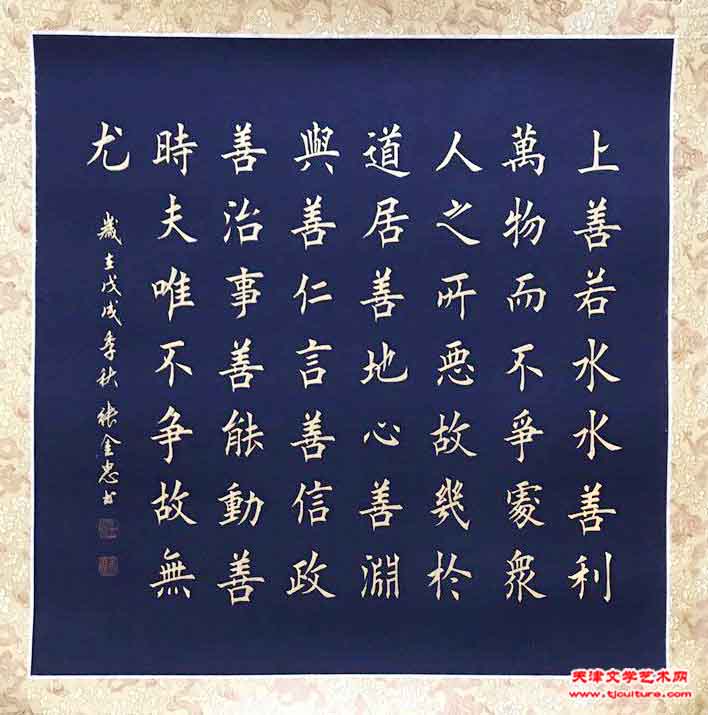 上善若水水善利
萬物而不爭處衆
人之所惡故幾於
道居善地心善淵
與善仁言善信政
善治事善能動善
時夫唯不争故無
尤
歲在戊戌季秋張金忠书
天津文学艺术网
www.tjculture.com